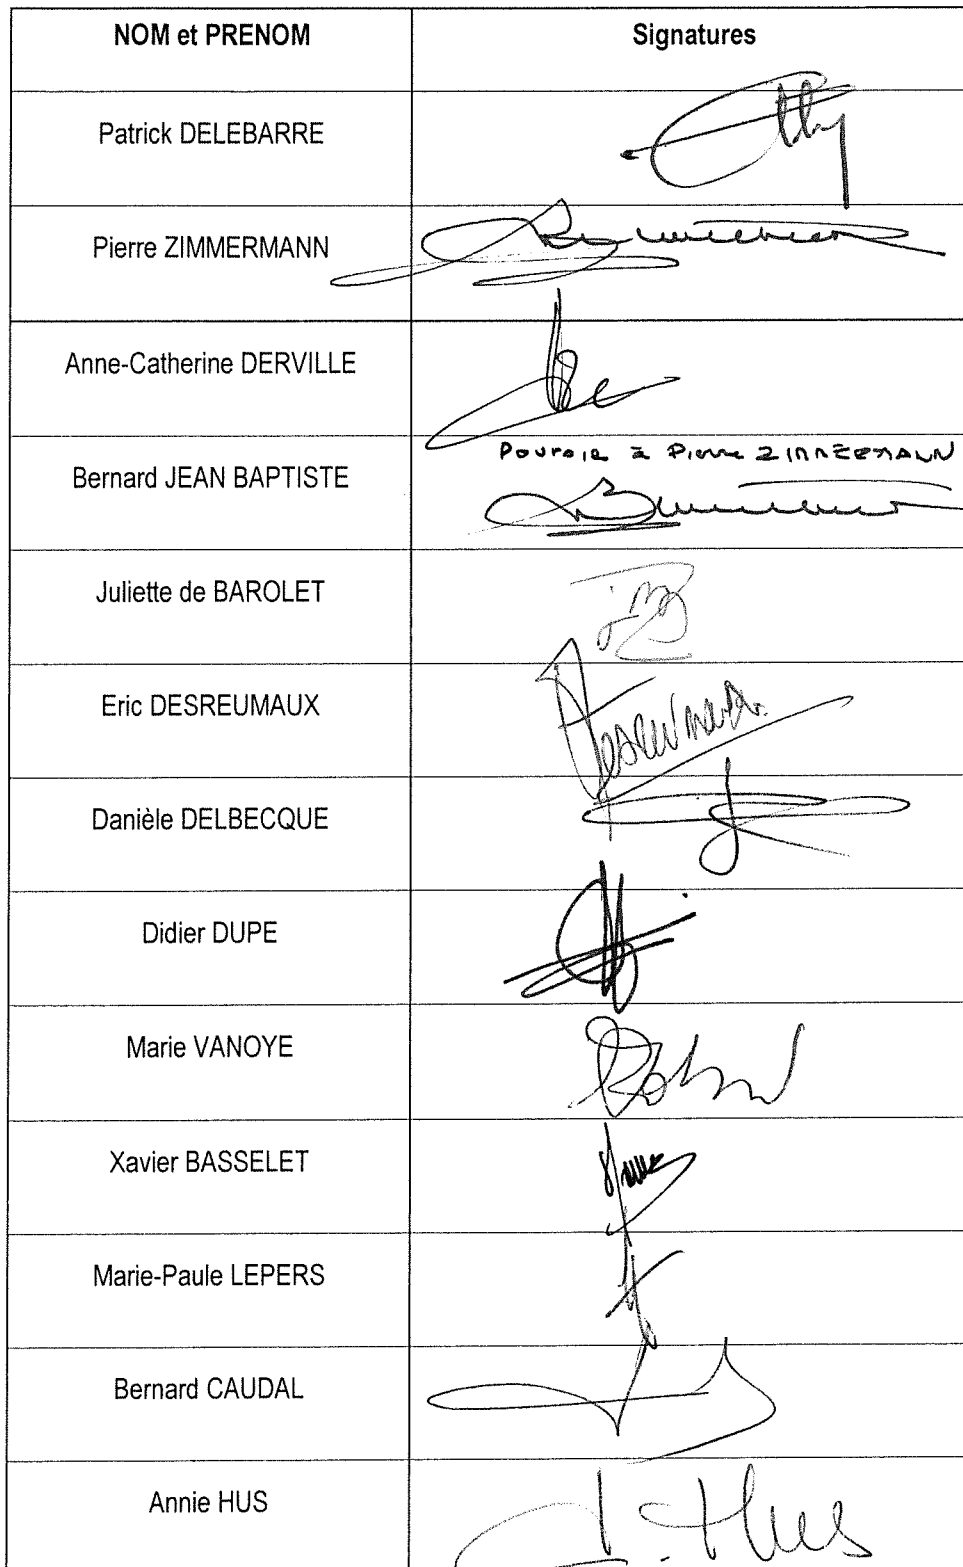 NOM et PRENOM Signatures
Patrick DELEBARRE
Pierre ZIMMERMANN
Anne-Catherine DERVILLE
Pouvoir à Pierre ZIMMERMANN
Bernard JEAN BAPTISTE
Juliette de BAROLET
Eric DESREUMAUX
Danièle DELBECQUE
Didier DUPE
Marie VANOYE
Xavier BASSELET
Marie-Paule LEPERS
Bernard CAUDAL
Annie HUS Hus